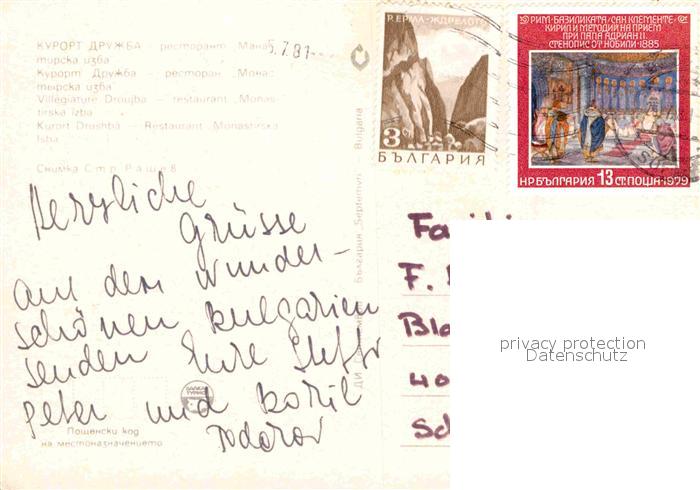 КУРОРТ ДРУЖБА – ресторант „Мана-
тирска изба
Курорт Дружба – ресторан „Монас-
тырска изба
Villégiature Droujba – restaurant „Monas-
tirska Izba
Kurort Drushba – Restaurant „Monastirska
Isba
5.7.81
Снимка Стр. Рашев
Herzliche
Grüsse
aus dem wunder-
schönen Bulgarien
senden Eure Steffi
Peter und Božil
Todorov
БАЛКАН
ТУРИСТ
Пощенски код
на местоназначението
България „Septemvri Bulgaria
Р. ЕРМА-ЖДРЕЛОТО
3 СТ
БЪЛГАРИЯ
РИМ-БАЗИЛИКАТА „САН КЛЕМЕНТЕ"
КИРИЛ И МЕТОДИЙ НА ПРИЕМ
ПРИ ПАПА АДРИАН II.
СТЕНОПИС ОТ НОБИЛИ-1885
НР БЪЛГАРИЯ 13 СТ. ПОЩА·1979
F.
Bl
40
Sc
privacy protection
Datenschutz